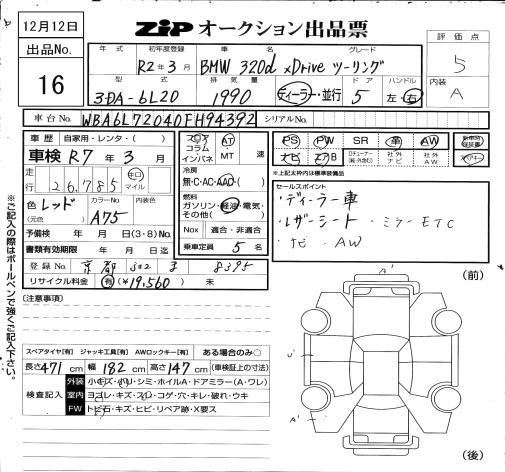 12月12日
ZiP オークション出品票
出品No.
16
年式
初年度登録
車名
グレード
R2年3月
BMW 320d xDrive ツーリング
型式
排気量
ドア
ハンドル
3DA-6L20
1990
ディーラー・並行
5
左・右
評価点
5
内装
A
車台No.
WBA6L72040FH94392
シリアルNo.
車歴
自家用・レンタ( )
車検 R7年3月
走行
26,785
キロ
マイル
色
レッド
(元色)
カラーNo.
A75
内装色
予備検 年 月 日(3・8)No.
書類有効期限 年 月 日迄
登録No.
8395
リサイクル料金 有(¥19,560) 未
(注意事項)
フロア
コラム
インパネ
AT
MT
速
冷房
無・C・AC・AAC
燃料
ガソリン・軽油・電気・
その他( )
Nox 適合・非適合
乗車定員 5 名
PS
PW
SR
革
AW
ナビ
エアB
社外
ナビ
社外
AW
※上記太枠内は標準装備品
セールスポイント
・ディーラー車
・レザーシート ・ミラーETC
・ナビ ・AW
(前)
A'
A'
(後)
スペアタイヤ[有] ジャッキ工具[有] AWロックキー[有] ある場合のみ○
長さ 471 cm 幅 182 cm 高さ 147 cm (車検証上の寸法)
検査記入
外装 小キズ・ハリ・シミ・ホイルA・ドアミラー(A・ワレ)
室内 ヨゴレ・キズ・スレ・コゲ・穴・キレ・破れ・ウキ
FW トビ石・キズ・ヒビ・リペア跡・X要ス
※ご記入の際はボールペンで強くご記入下さい。